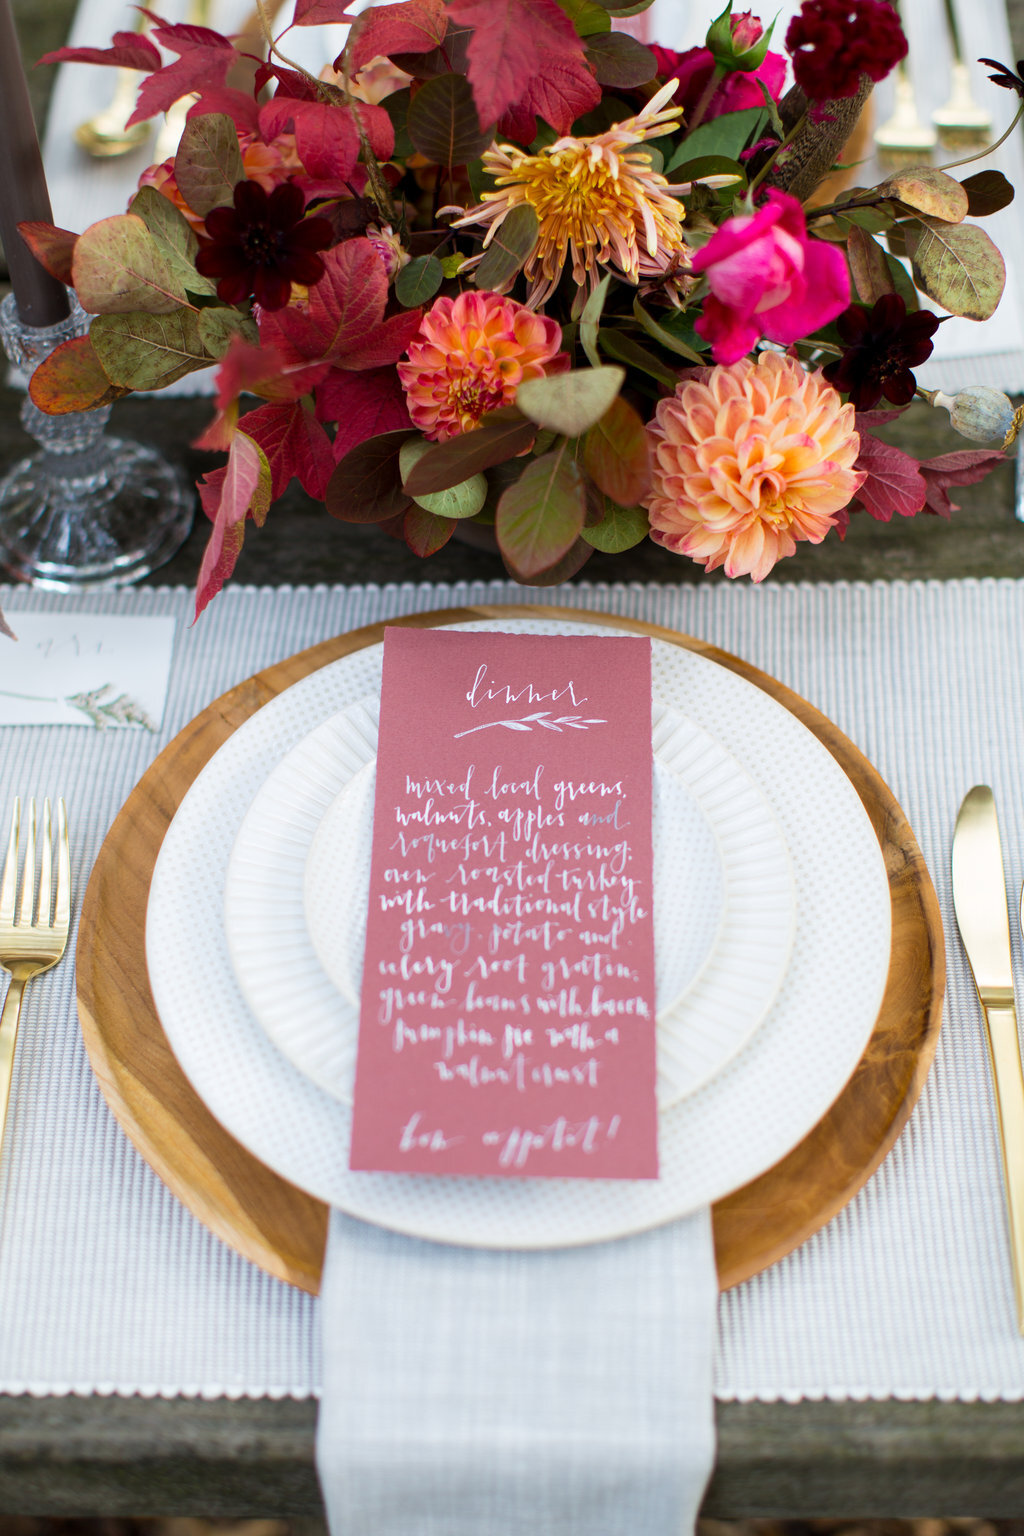 dinner
mixed local greens,
walnuts, apples and
roquefort dressing;
oven roasted turkey
with traditional style
gravy, potato and
celery root gratin,
green beans with bacon,
pumpkin pie with a
walnut crust
bon appetit!